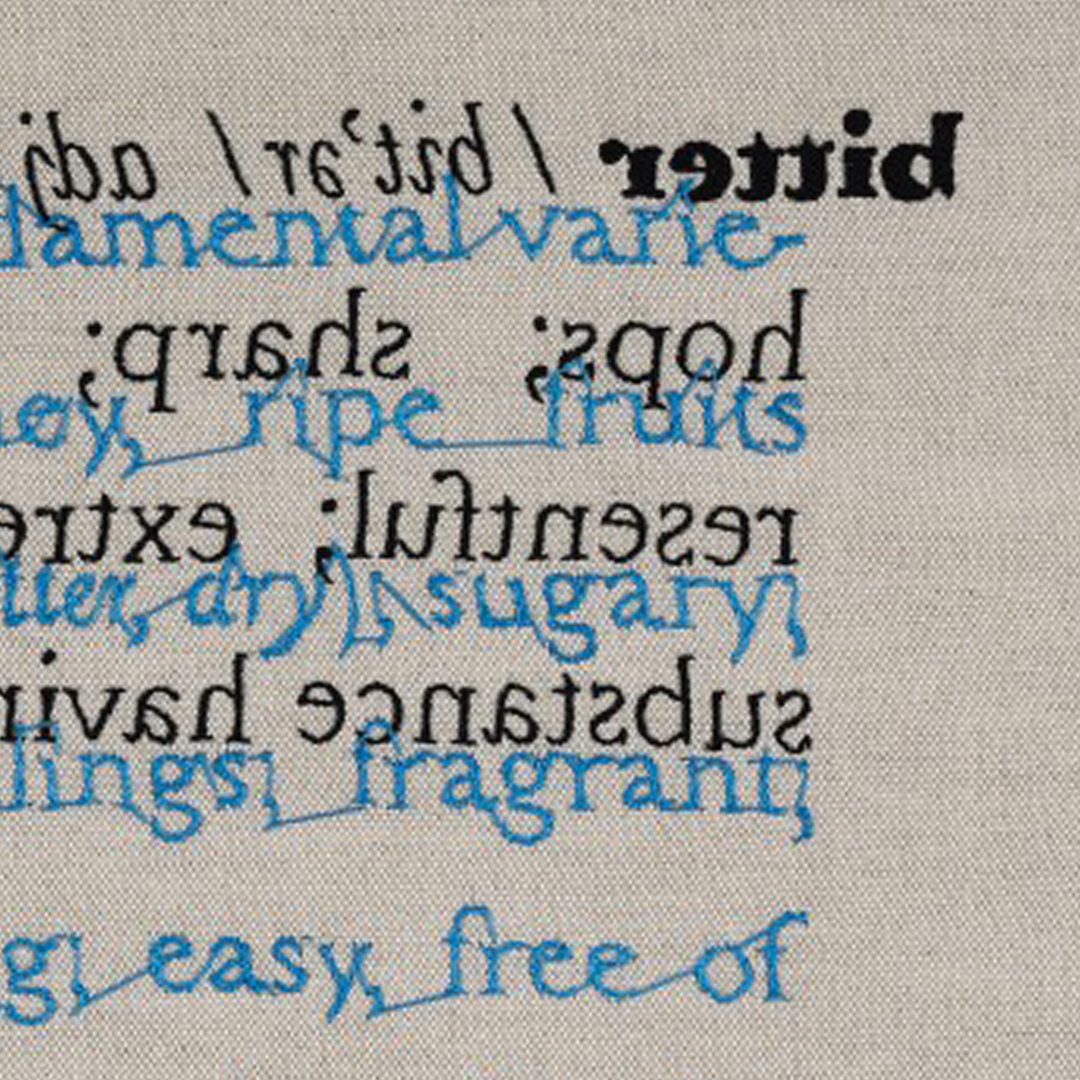 bitter /bit'ər/ adj
damental varie-
hops; sharp;
ripe fruits
resentful; extre
dry); sugary;
substance havin
lings; fragrant;
g; easy, free of